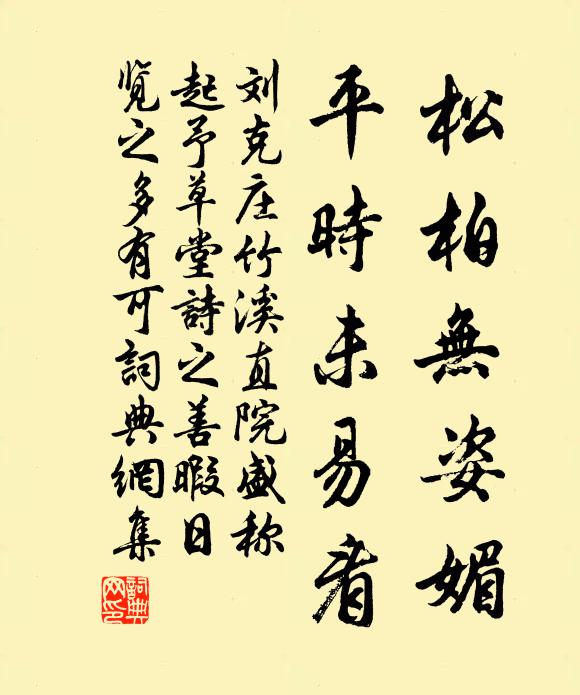 松柏無姿媚
平時未易看
刘克庄竹溪直院盛称
起予草堂詩之善暇日
覽之多有可詞典網集
詞典
网印